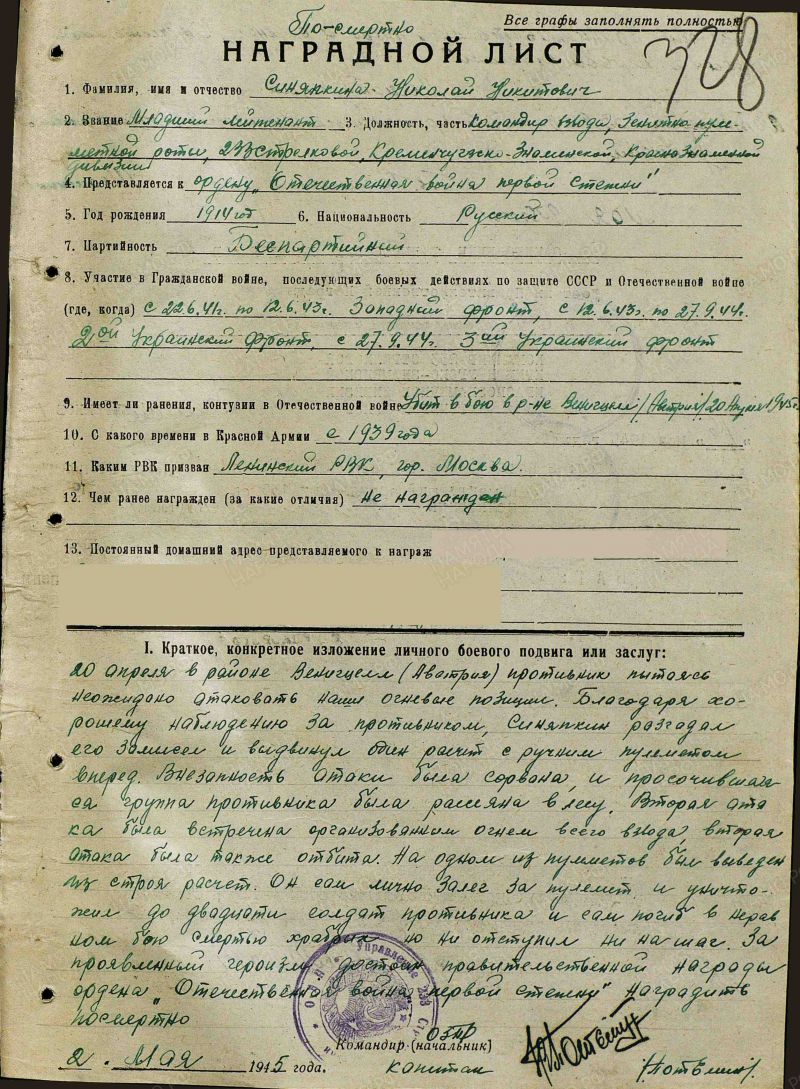 По-смертно
Все графы заполнять полностью
НАГРАДНОЙ ЛИСТ
328
1. Фамилия, имя и отчество Синяпкина Николай Никитович
2. Звание Младший лейтенант 3. Должность, часть Командир взвода, Зенитно пуле-
метной роты, 233 Стрелковой, Кременчугско-Знаменской, Краснознаменной
дивизии
4. Представляется к ордену „Отечественная война первой степени"
5. Год рождения 1914 год 6. Национальность Русский
7. Партийность Беспартийный
8. Участие в Гражданской войне, последующих боевых действиях по защите СССР и Отечественной войне
(где, когда) с 22.6.41г. по 12.6.43г. Западный фронт, с 12.6.43г. по 27.9.44г.
2ой Украинский фронт, с 27.9.44г. 3ий Украинский фронт
9. Имеет ли ранения, контузии в Отечественной войне Убит в бою в р-не Венигцелл /Австрия/ 20 Апреля 1945г.
10. С какого времени в Красной Армии с 1939 года
11. Каким РВК призван Ленинский РВК, гор. Москва.
12. Чем ранее награжден (за какие отличия) не награжден
13. Постоянный домашний адрес представляемого к награж
I. Краткое, конкретное изложение личного боевого подвига или заслуг:
20 апреля в районе Венигцелл (Австрия) противник пытаясь
неожидано атаковать наши огневые позиции. Благодаря хо-
рошему наблюдению за противником, Синяпкин разгадал
его замысел и выдвинул один расчет с ручним пулеметом
вперед. Внезапность атаки была сорвана, и просочившая
са группа противника была рассияна в лесу. Вторая ата
ка была встречена организованим огнем всего взвода вторая
атака была также отбита. На одном из пулметов был выведен
из строя расчет. Он сам лично залег за пулемет и уничто-
жил до двадцати солдат противника и сам погиб в нерав
ном бою смертью храбрих но ни отступил ни на шаг. За
проявленный героизм достоин правительственной награды
ордена „Отечественная война первой степени" наградить
посмертно
Управление 233
Командир (начальник) ОЗПР
2. Мая 1945 года. капитан /Потёмин/